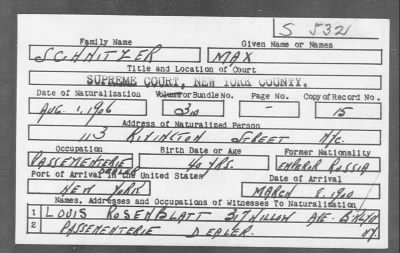 S 5321
Family Name Given Name or Names
SCHNITZER MAX
Title and Location of Court
SUPREME COURT, NEW YORK COUNTY.
Date of Naturalization Volume or Bundle No. Page No. Copy of Record No.
AUG. 1, 1906 310 - 15
Address of Naturalized Person
113 RIVINGTON STREET NYC.
Occupation Birth Date or Age Former Nationality
PASSEMENTERIE DEALER 40 YRS. EMPEROR RUSSIA
Port of Arrival in the United States Date of Arrival
NEW YORK MARCH 8, 1900
Names, Addresses and Occupations of Witnesses To Naturalization
1 LOUIS ROSENBLATT 317 WILLOW AVE. BKLYN
2 PASSEMENTERIE DEALER. NY.